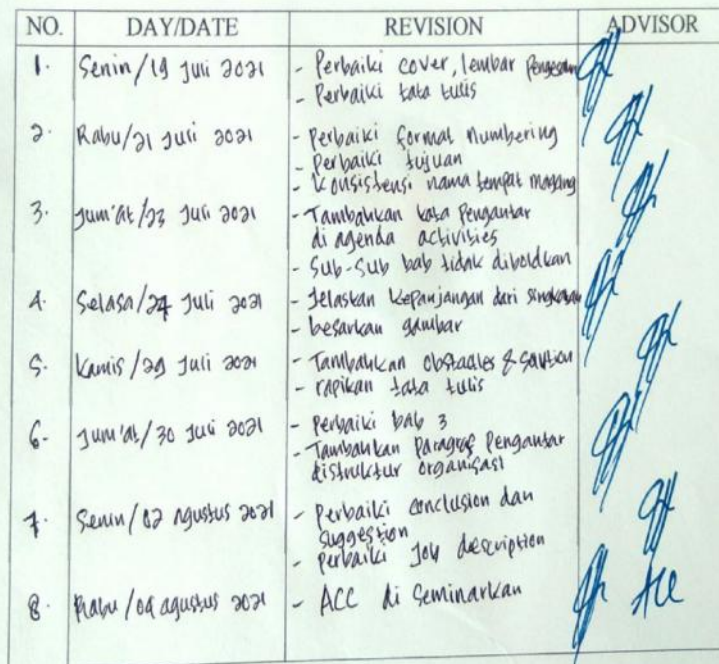 NO. DAY/DATE REVISION ADVISOR
1. Senin/19 Juli 2021 - Perbaiki cover, lembar
- Perbaiki tata tulis
2. Rabu/21 Juli 2021 - Perbaiki format numbering
- Perbaiki tujuan
- Konsistensi nama tempat magang
3. Jum'at/23 Juli 2021 - Tambahkan kata Pengantar
di agenda activities
- Sub-Sub bab tidak diboldkan
4. Selasa/27 Juli 2021 - Jelaskan kepanjangan dari singkatan
- besarkan gambar
5. Kamis/29 Juli 2021 - Tambahkan obstacles &
- rapikan tata tulis
6. Jum'at/30 Juli 2021 - Perbaiki bab 3
- Tambahkan Paragraf Pengantar
distruktur organisasi
7. Senin/02 Agustus 2021 - Perbaiki conclusion dan
suggestion
- Perbaiki Job description
8. Rabu/04 agustus 2021 - ACC di Seminarkan ACC